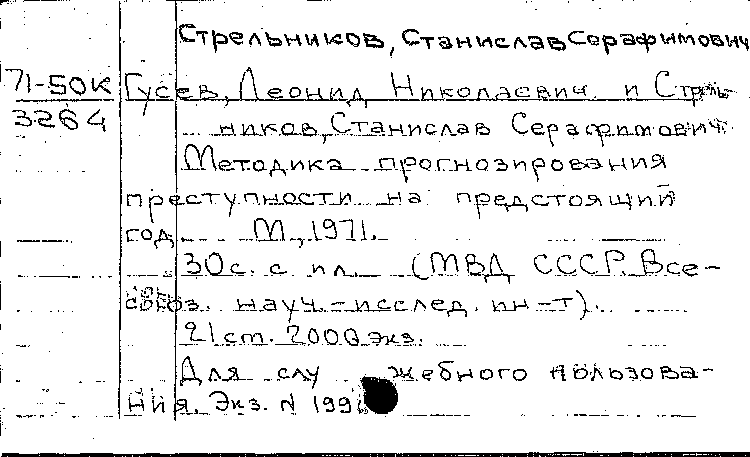 Стрельников, Станислав Серафимович
71-50К Гусев, Леонид Николаевич и Стрель-
3264 ников, Станислав Серафимович.
Методика прогнозирования
преступности на предстоящий
год. М., 1971.
30 с. с ил. (МВД СССР. Все-
союз. науч.-исслед. ин-т).
21 cm. 2000 экз.
Для служебного пользова-
ния. Экз. N 199